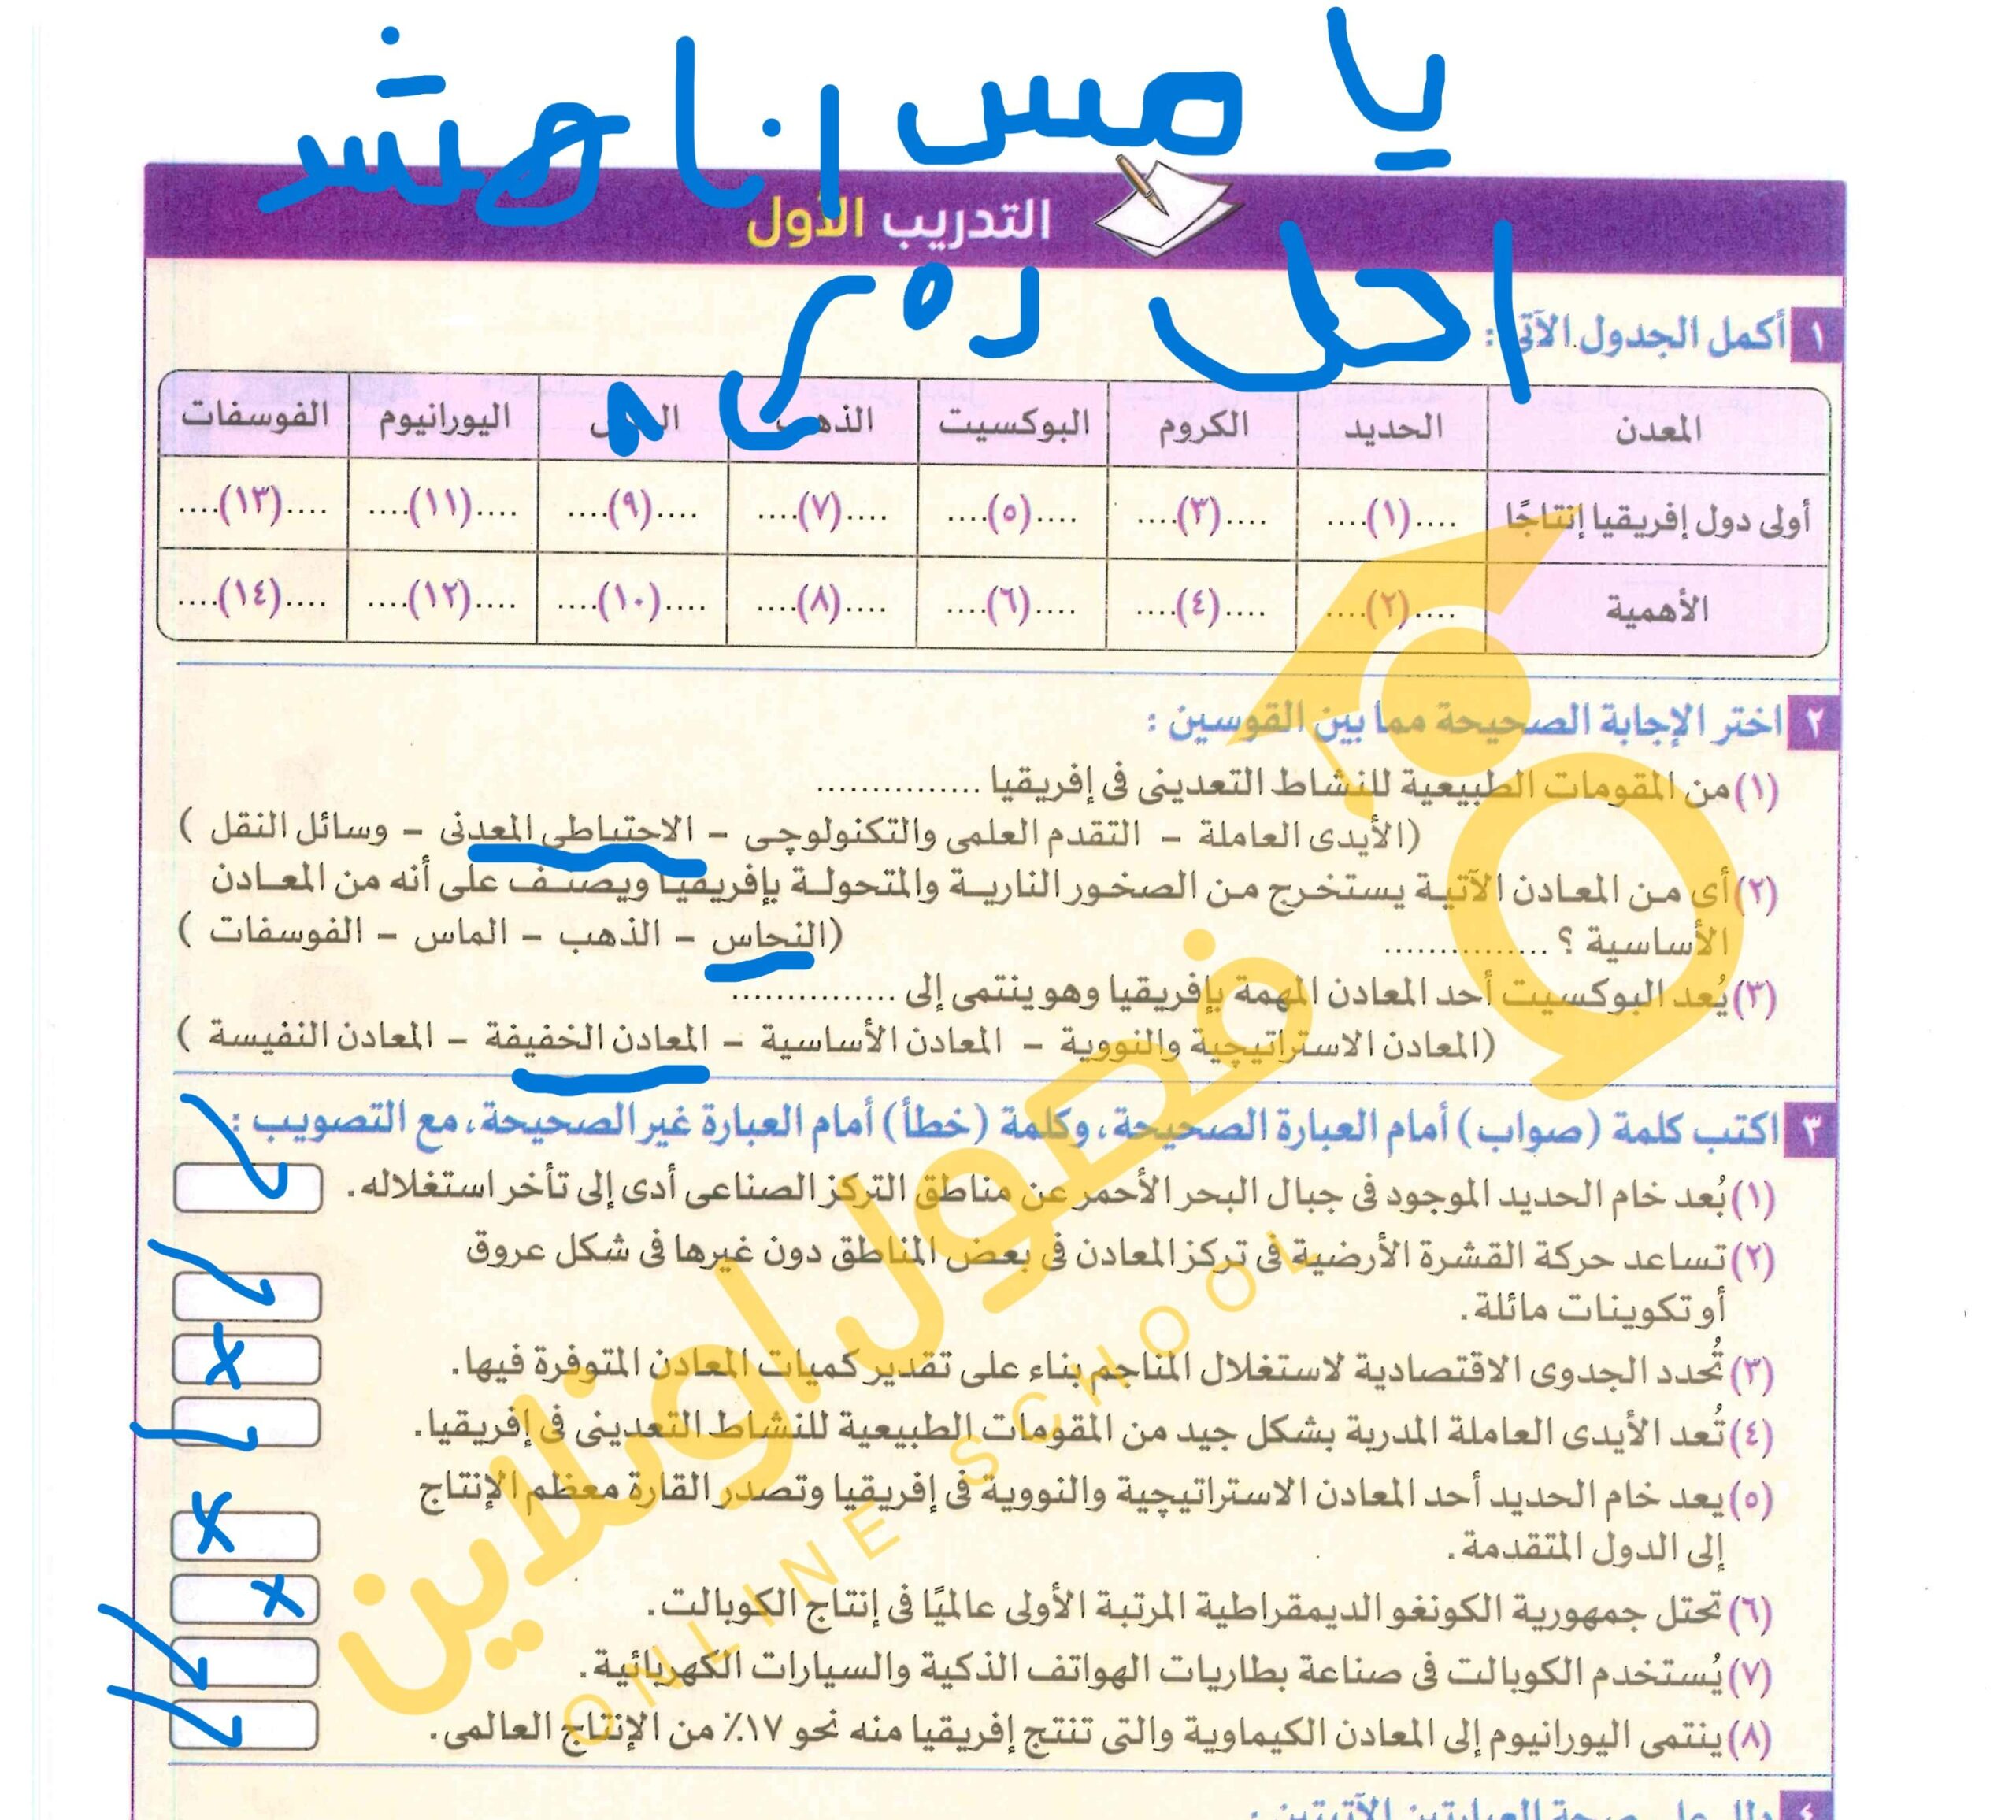 يا مس انا هتشد
التدريب الأول
احل ده ك
١ أكمل الجدول الآتى :
المعدن الحديد الكروم البوكسيت الذهب اليورانيوم الفوسفات
أولى دول إفريقيا إنتاجًا ....(١).... ....(٣).... ....(٥).... ....(٧).... ....(٩).... ....(١١).... ....(١٣)....
الأهمية ....(٢).... ....(٤).... ....(٦).... ....(٨).... ....(١٠).... ....(١٢).... ....(١٤)....
٢ اختر الإجابة الصحيحة مما بين القوسين :
(١) من المقومات الطبيعية للنشاط التعدينى فى إفريقيا ...............
(الأيدى العاملة – التقدم العلمى والتكنولوچى – الاحتياطى المعدنى – وسائل النقل )
(٢) أى من المعادن الآتية يستخرج من الصخور النارية والمتحولة بإفريقيا ويصنف على أنه من المعادن
الأساسية ؟ ............... (النحاس – الذهب – الماس – الفوسفات )
(٣) يُعد البوكسيت أحد المعادن المهمة بإفريقيا وهو ينتمى إلى ...............
(المعادن الاستراتيچية والنووية – المعادن الأساسية – المعادن الخفيفة – المعادن النفيسة )
٣ اكتب كلمة (صواب) أمام العبارة الصحيحة، وكلمة (خطأ) أمام العبارة غير الصحيحة، مع التصويب :
(١) بُعد خام الحديد الموجود فى جبال البحر الأحمر عن مناطق التركز الصناعى أدى إلى تأخر استغلاله.
(٢) تساعد حركة القشرة الأرضية فى تركز المعادن فى بعض المناطق دون غيرها فى شكل عروق
أو تكوينات مائلة.
(٣) تُحدد الجدوى الاقتصادية لاستغلال المناجم بناء على تقدير كميات المعادن المتوفرة فيها.
(٤) تُعد الأيدى العاملة المدربة بشكل جيد من المقومات الطبيعية للنشاط التعدينى فى إفريقيا.
(٥) يعد خام الحديد أحد المعادن الاستراتيچية والنووية فى إفريقيا وتصدر القارة معظم الإنتاج
إلى الدول المتقدمة.
(٦) تحتل جمهورية الكونغو الديمقراطية المرتبة الأولى عالميًا فى إنتاج الكوبالت.
(٧) يُستخدم الكوبالت فى صناعة بطاريات الهواتف الذكية والسيارات الكهربائية.
(٨) ينتمى اليورانيوم إلى المعادن الكيماوية والتى تنتج إفريقيا منه نحو ١٧٪ من الإنتاج العالمى.
٤ دلل على صحة العبارتين الآتيتين :
فصول اونلاين
ONLINE SCHOOL